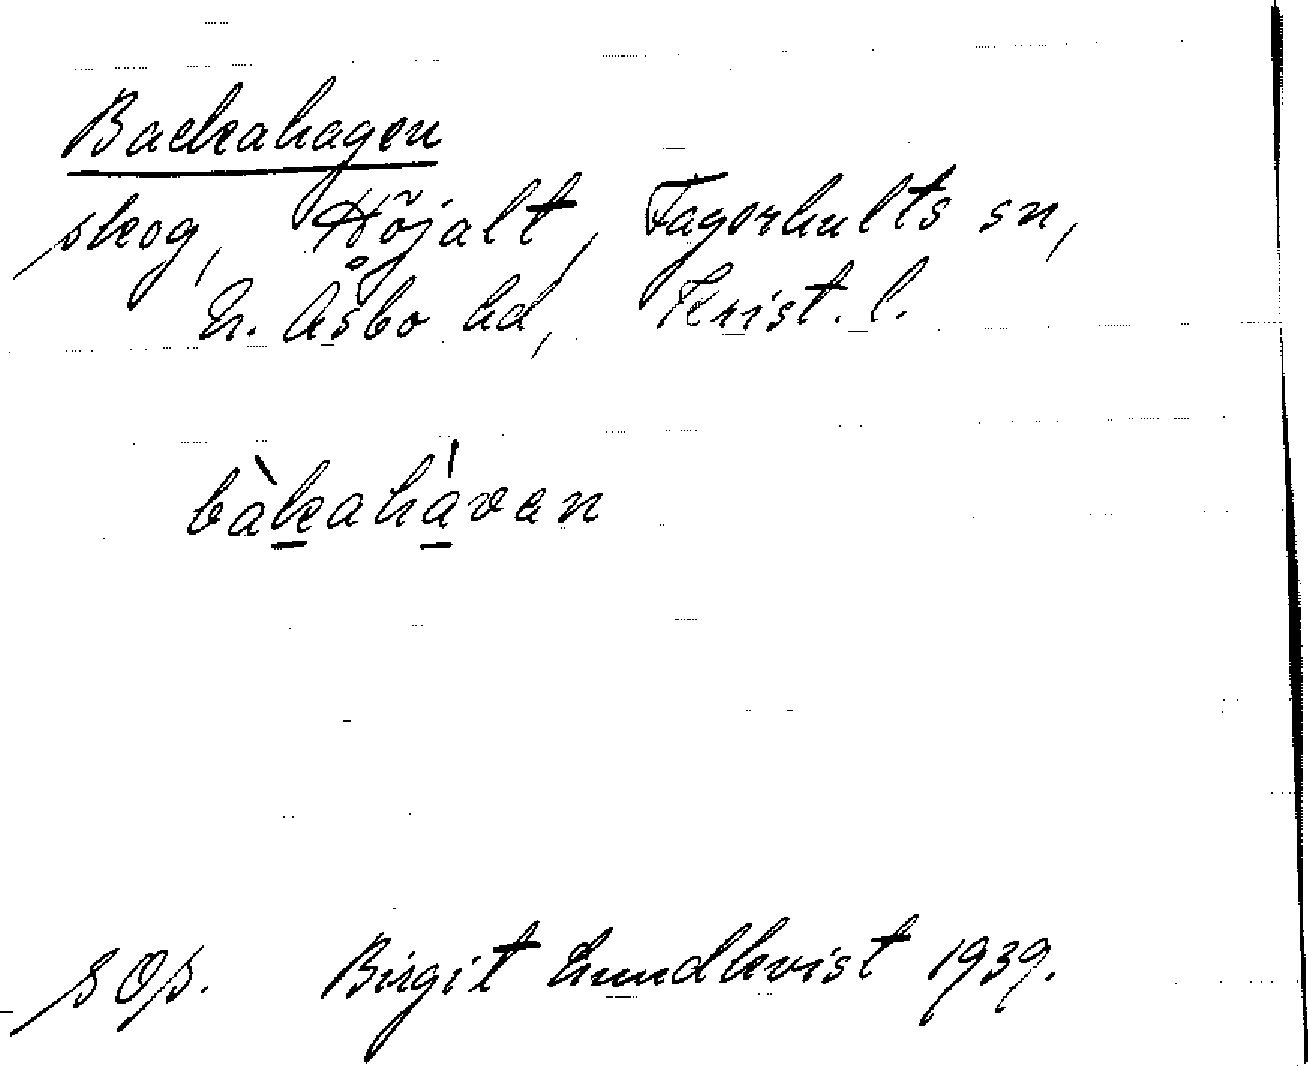 Backahagen
skog, Höjalt, Fagerhults sn,
N. Åsbo hd, Krist. l.
bàkahávan
SOp. Birgit Lundkvist 1939.